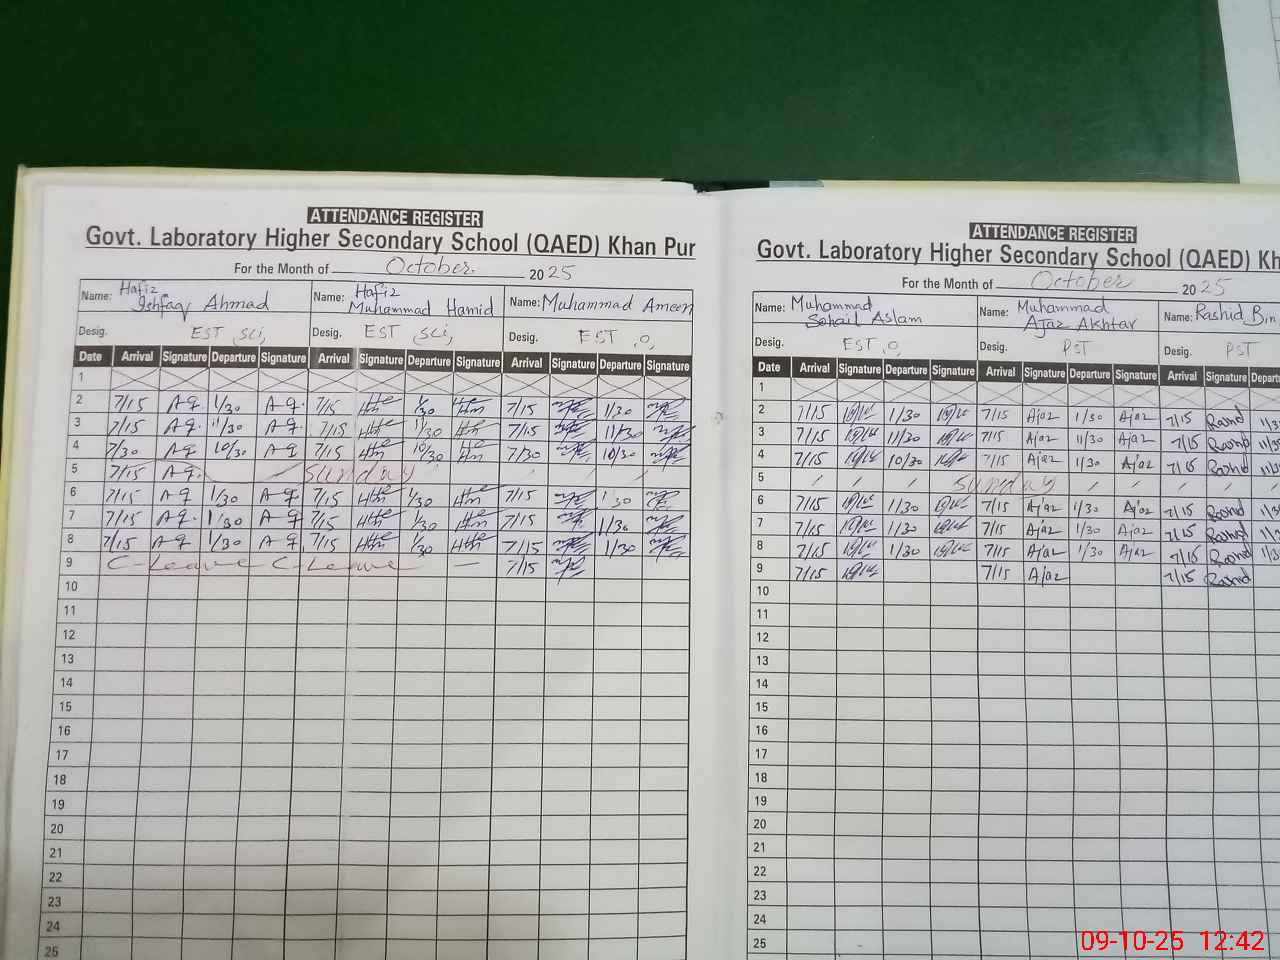 ATTENDANCE REGISTER
Govt. Laboratory Higher Secondary School (QAED) Khan Pur
For the Month of October 2025
Name: Hafiz Ishfaq Ahmad Name: Hafiz Muhammad Hamid Name: Muhammad Ameen
Desig. EST Sci, Desig. EST Sci, Desig. EST, O,
Date Arrival Signature Departure Signature Arrival Signature Departure Signature Arrival Signature Departure Signature
1
2 7/15 A q. 1/30 A q. 7/15 1/30 7/15 1/30
3 7/15 A q. 11/30 A q. 7/15 11/30 7/15 11/30
4 7/30 A q 10/30 A q 7/15 10/30 7/30 10/30
5 7/15 A q. Sunday
6 7/15 A q 1/30 A q 7/15 1/30 7/15 1/30
7 7/15 A q. 1/30 A q 7/15 1/30 7/15 1/30
8 7/15 A q 1/30 A q. 7/15 1/30 7/15 1/30
9 C-Leave C-Leave 7/15
10
11
12
13
14
15
16
17
18
19
20
21
22
23
24
25
ATTENDANCE REGISTER
Govt. Laboratory Higher Secondary School (QAED) Kh
For the Month of October 2025
Name: Muhammad Sohail Aslam Name: Muhammad Ajaz Akhtar Name: Rashid Bin
Desig. EST, O, Desig. PST Desig. PST
Date Arrival Signature Departure Signature Arrival Signature Departure Signature Arrival Signature Depart
1
2 7/15 1/30 7/15 Ajaz 1/30 Ajaz 7/15 Rashid
3 7/15 11/30 7/15 Ajaz 11/30 Ajaz 7/15 Rashid
4 7/15 10/30 7/15 Ajaz 1/30 Ajaz 7/15 Rashid
5 Sunday
6 7/15 1/30 7/15 Ajaz 1/30 Ajaz 7/15 Rashid
7 7/15 1/30 7/15 Ajaz 1/30 Ajaz 7/15 Rashid
8 7/15 1/30 7/15 Ajaz 1/30 Ajaz 7/15 Rashid
9 7/15 7/15 Ajaz 7/15 Rashid
10
11
12
13
14
15
16
17
18
19
20
21
22
23
24
25
09-10-25 12:42